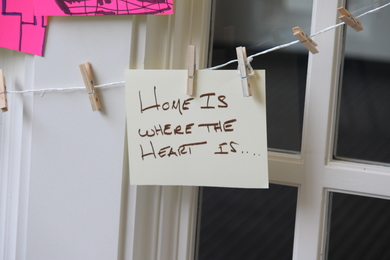 Home Is
where the
Heart is....